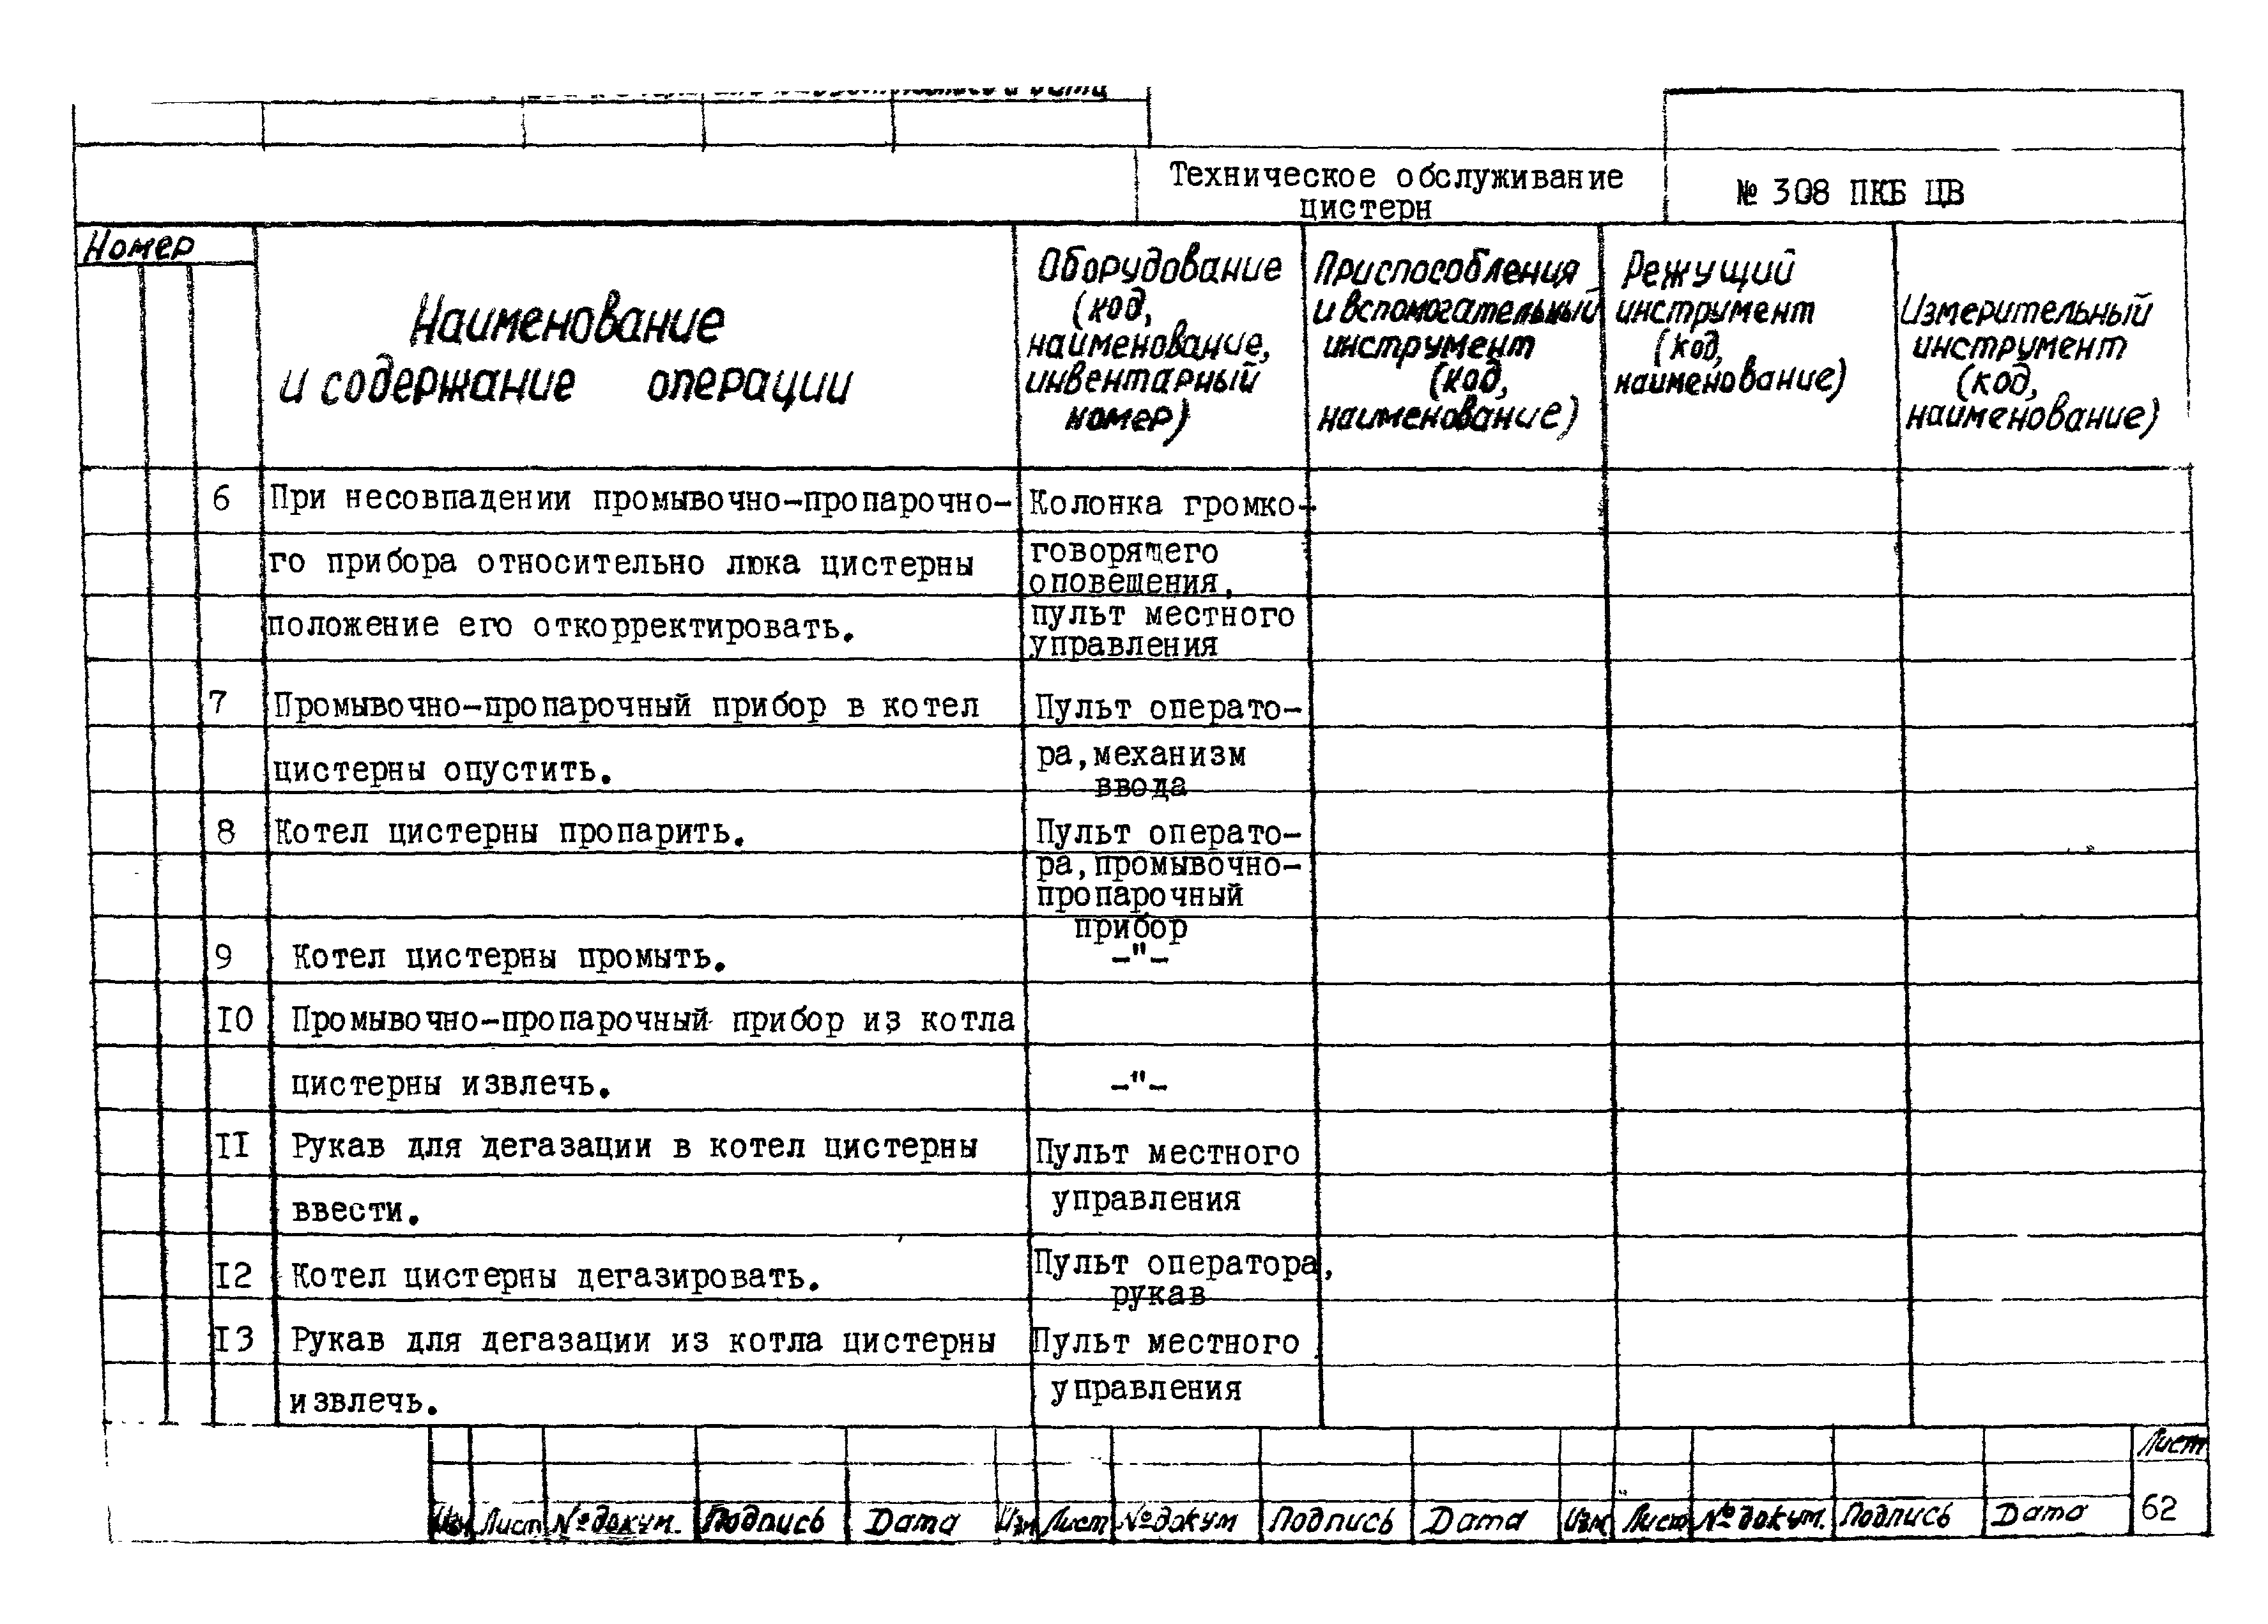 и дата
Техническое обслуживание
цистерн
№ 308 ПКБ ЦВ
Номер
Наименование
и содержание операции
Оборудование
(код,
наименование,
инвентарный
номер)
Приспособления
и вспомогательный
инструмент
(код,
наименование)
Режущий
инструмент
(код,
наименование)
Измерительный
инструмент
(код,
наименование)
6 При несовпадении промывочно-пропарочно-
го прибора относительно люка цистерны
положение его откорректировать.
Колонка громко-
говорящего
оповещения,
пульт местного
управления
7 Промывочно-пропарочный прибор в котел
цистерны опустить.
Пульт операто-
ра, механизм
ввода
8 Котел цистерны пропарить.
Пульт операто-
ра, промывочно-
пропарочный
прибор
9 Котел цистерны промыть.
-"-
10 Промывочно-пропарочный прибор из котла
цистерны извлечь.
-"-
11 Рукав для дегазации в котел цистерны
ввести.
Пульт местного
управления
12 Котел цистерны дегазировать.
Пульт оператора,
рукав
13 Рукав для дегазации из котла цистерны
извлечь.
Пульт местного
управления
Изм Лист № докум. Подпись Дата Изм Лист № докум Подпись Дата Изм Лист № докум. Подпись Дата
Лист
62